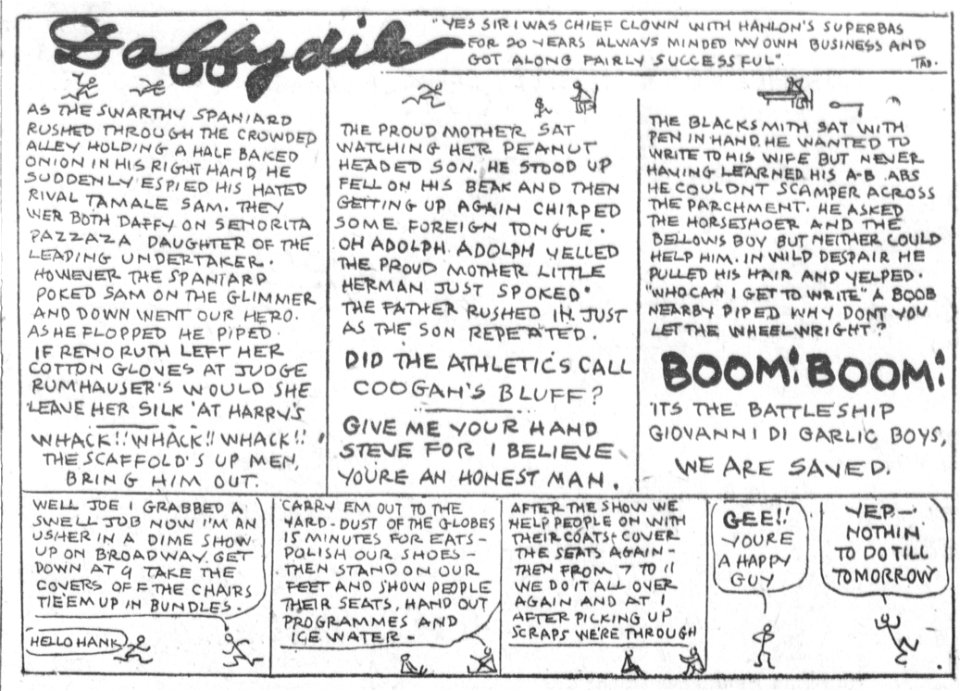 Daffydils
"YES SIR I WAS CHIEF CLOWN WITH HANLON'S SUPERBAS
FOR 20 YEARS ALWAYS MINDED MY OWN BUSINESS AND
GOT ALONG FAIRLY SUCCESSFUL".
TAD.
AS THE SWARTHY SPANIARD
RUSHED THROUGH THE CROWDED
ALLEY HOLDING A HALF BAKED
ONION IN HIS RIGHT HAND, HE
SUDDENLY ESPIED HIS HATED
RIVAL TAMALE SAM. THEY
WER BOTH DAFFY ON SENORITA
PAZZAZA DAUGHTER OF THE
LEADING UNDERTAKER.
HOWEVER THE SPANIARD
POKED SAM ON THE GLIMMER
AND DOWN WENT OUR HERO.
AS HE FLOPPED HE PIPED.
IF RENO RUTH LEFT HER
COTTON GLOVES AT JUDGE
RUMHAUSER'S WOULD SHE
LEAVE HER SILK 'AT HARRY'S
WHACK!! WHACK!! WHACK!!
THE SCAFFOLD'S UP MEN,
BRING HIM OUT.
THE PROUD MOTHER SAT
WATCHING HER PEANUT
HEADED SON. HE STOOD UP
FELL ON HIS BEAK AND THEN
GETTING UP AGAIN CHIRPED
SOME FOREIGN TONGUE.
OH ADOLPH. ADOLPH YELLED
THE PROUD MOTHER LITTLE
HERMAN JUST SPOKED.
THE FATHER RUSHED IN JUST
AS THE SON REPEATED.
DID THE ATHLETICS CALL
COOGAN'S BLUFF?
GIVE ME YOUR HAND
STEVE FOR I BELIEVE
YOU'RE AN HONEST MAN.
THE BLACKSMITH SAT WITH
PEN IN HAND. HE WANTED TO
WRITE TO HIS WIFE BUT NEVER
HAVING LEARNED HIS A-B-ABS
HE COULDNT SCAMPER ACROSS
THE PARCHMENT. HE ASKED
THE HORSESHOER AND THE
BELLOWS BOY BUT NEITHER COULD
HELP HIM. IN WILD DESPAIR HE
PULLED HIS HAIR AND YELPED.
"WHO CAN I GET TO WRITE" A BOOB
NEARBY PIPED WHY DONT YOU
LET THE WHEELWRIGHT?
BOOM! BOOM!
ITS THE BATTLESHIP
GIOVANNI DI GARLIC BOYS,
WE ARE SAVED.
WELL JOE I GRABBED A
SWELL JOB NOW I'M AN
USHER IN A DIME SHOW
UP ON BROADWAY. GET
DOWN AT 9 TAKE THE
COVERS OFF THE CHAIRS
TIE EM UP IN BUNDLES.
HELLO HANK
CARRY EM OUT TO THE
YARD - DUST OFF THE GLOBES
15 MINUTES FOR EATS -
POLISH OUR SHOES -
THEN STAND ON OUR
FEET AND SHOW PEOPLE
THEIR SEATS, HAND OUT
PROGRAMMES AND
ICE WATER -
AFTER THE SHOW WE
HELP PEOPLE ON WITH
THEIR COATS - COVER
THE SEATS AGAIN -
THEN FROM 7 TO 11
WE DO IT ALL OVER
AGAIN AND AT 1
AFTER PICKING UP
SCRAPS WE'RE THROUGH
GEE!!
YOURE
A HAPPY
GUY
YEP -
NOTHIN
TO DO TILL
TOMORROW